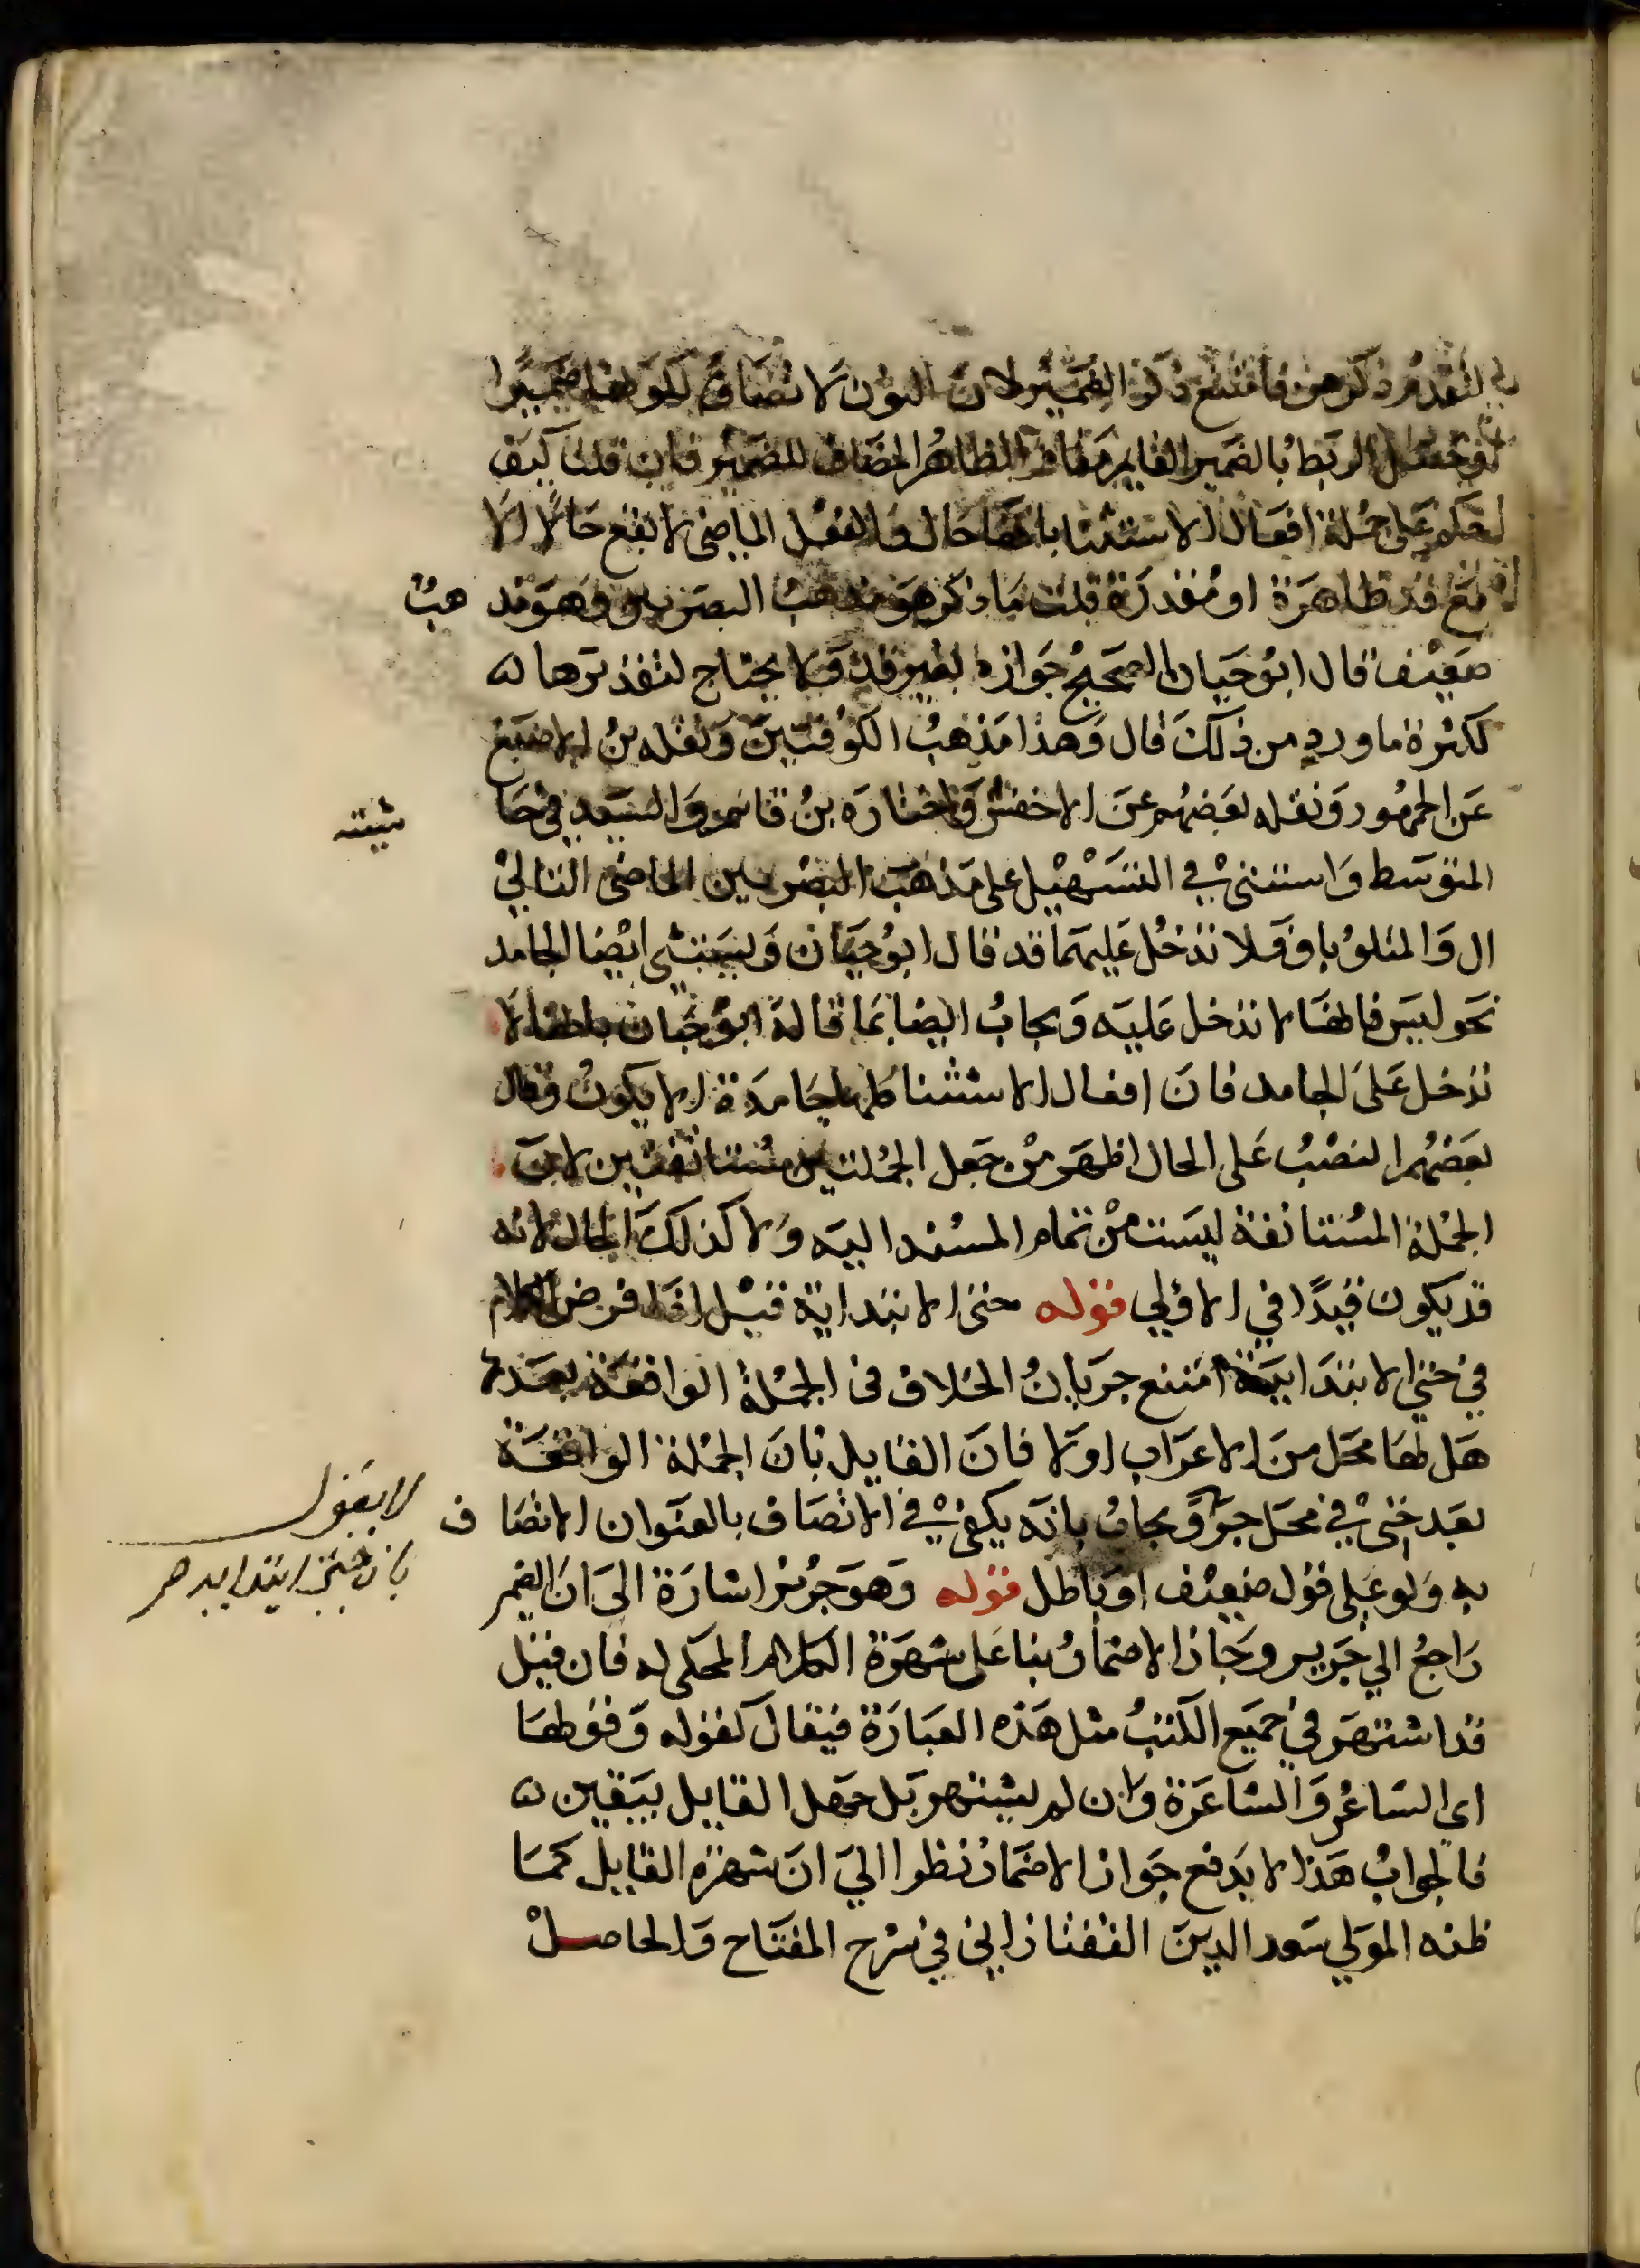 لتقدم ذكرهن فامتنع ذكر الضمير لان النون لا تضاف لكونها ضميرا
فحصل الربط بالضمير القايم مقام الظاهر المضاف للضمير فان قلت كيف
على جملة افعال الاستثنا بانها حال والفعل الماضى لا يقع حالا الا
مع قد ظاهرة او مقدرة قلت ما ذكر هو مذهب البصريين وهو مذ هب
ضعيف قال ابو حيان الصحيح جوازه بغير قد ولا يحتاج لتقديرها
لكثرة ما ورد من ذلك قال وهذا مذهب الكوفيين ونقله بن الاصبغ
عن الجمهور ونقله بعضهم عن الاخفش واختاره بن قاسم والسيد في حا شيته
المتوسط واستثنى في التسهيل على مذهب البصريين الماضى التالي
ال والمتلو باو فلا تدخل عليهما قد قال ابو حيان ويستثنى ايضا الجامد
نحو ليس فانها لا تدخل عليه ويجاب ايضا بما قاله ابو حيان بانها لا
تدخل على الجامد فان افعال الاستثنا كلها جامدة الا يكون وقال
بعضهم النصب على الحال اظهر من جعل الجملتين مستانفتين لان
الجملة المستانفة ليست من تمام المسند اليه ولا كذلك الحال لانه
قد يكون قيدا في الاولي قوله حتى الابتداية قيل اذا فرض الكلام
في حتى الابتدايية امتنع جريان الخلاف فى الجملة الواقعة بعدها
هل لها محل من الاعراب اولا فان القايل بان الجملة الواقعة
بعد حتى في محل جر ويجاب بانه يكفي في الاتصاف بالعنوان الاتصا ف
لا يقول
بان حتى ابتداييه صح
به ولو على قول ضعيف او باطل قوله وهو جرير اشارة الى ان الضمر
راجع الي جرير وجاز الاضمار بنا على شهرة الكلام المحكى له فان قيل
قد اشتهر في جميع الكتب مثل هذه العبارة فيقال كقوله وقولها
اى الشاعر والشاعرة وان لم يشتهر بل جهل القايل بيقين
فالجواب هذا لا يدفع جواز الاضمار نظرا الي ان شهرة القايل كما
ظنه المولي سعد الدين التفتازاني في شرح المفتاح والحاصل